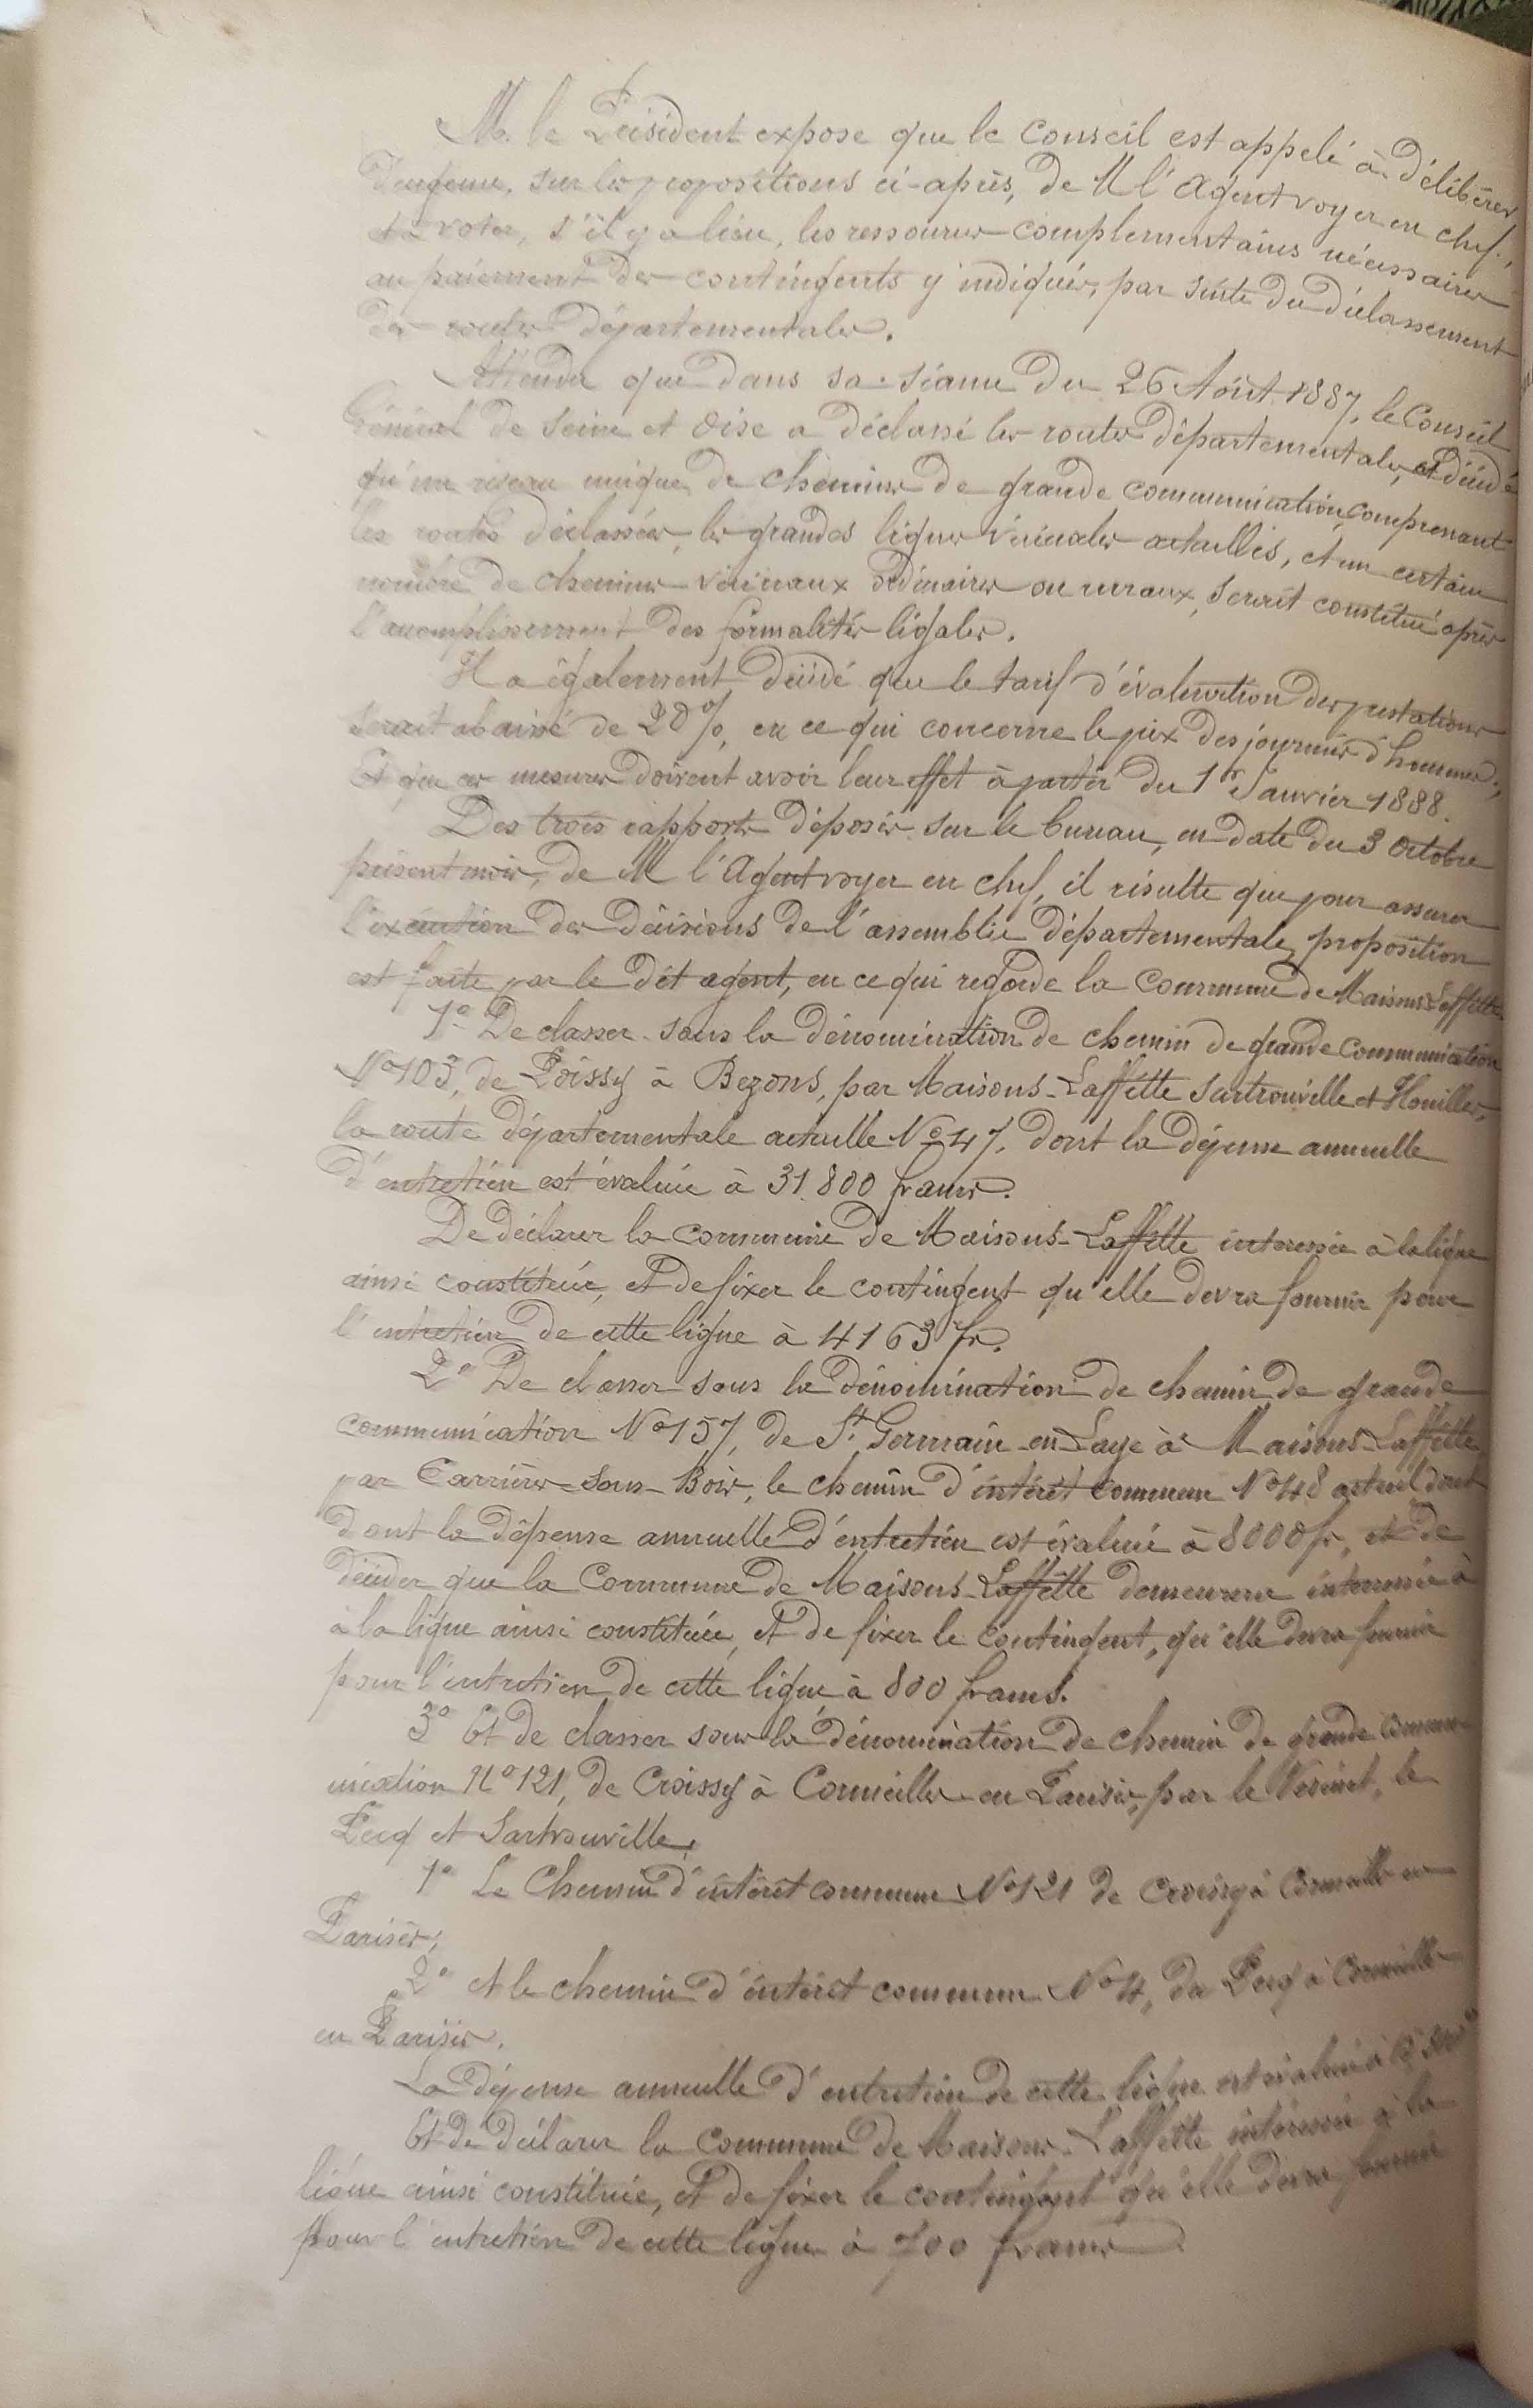 M. le Président expose que le Conseil est appelé à délibérer
d'urgence, sur les propositions ci-après, de M l'Agent voyer en chef,
et à voter, s'il y a lieu, les ressources complémentaires nécessaires
au paiement des contingents y indiqués, par suite du déclassement
des routes départementales.
Attendu que dans sa séance du 26 Août 1887, le Conseil
Général de Seine et Oise a déclassé les routes départementales, et décidé
qu'un réseau unique, de chemins de grande communication, comprenant
les routes déclassées, les grandes lignes vicinales actuelles, et un certain
nombre de chemins vicinaux ordinaires ou ruraux, serait constitué après
l'accomplissement des formalités légales.
Il a également décidé que le tarif d'évaluation des prestations
serait abaissé de 20 %, en ce qui concerne le prix des journées d'hommes;
Et que ces mesures doivent avoir leur effet à partir du 1er Janvier 1888.
Des trois rapports déposés sur le bureau, en date du 3 Octobre
présent mois, de M l'Agent voyer en chef, il résulte que pour assurer
l'exécution des décisions de l'assemblée départementale, proposition
est faite par le dit agent, en ce qui regarde la Commune de Maisons-Laffitte
1° De classer sous la dénomination de chemin de grande communication
N° 103, de Poissy à Bezons, par Maisons-Laffitte Sartrouville et Houilles,
la route départementale actuelle N° 47, dont la dépense annuelle
d'entretien est évaluée à 31.800 francs.
De déclarer la commune de Maisons-Laffitte interessée à la ligne
ainsi constituée, et de fixer le contingent qu'elle devra fournir pour
l'entretien de cette ligne à 4163 fr.
2° De classer sous la dénomination de chemin de grande
communication N° 157, de St Germain-en-Laye à Maisons-Laffitte
par Carrières-sous-Bois, le chemin d'intérêt commun N° 48 actuel dont
dont la dépense annuelle d'entretien est évaluée à 8000 fr, et de
décider que la Commune de Maisons-Laffitte demeurera intéressée à
à la ligne ainsi constituée, et de fixer le contingent, qu'elle devra fournir
pour l'entretien de cette ligne à 800 francs.
3° Et de classer sous la dénomination de chemin de grande commu-
nication N° 121, de Croissy à Cormeilles en Parisis, par le Vésinet, le
Pecq et Sartrouville,
1° Le Chemin d'intérêt commun N° 121 de Croissy à Cormeilles en
Parisis,
2° et le chemin d'intérêt commun N° 4, du Pecq à Cormeilles
en Parisis.
La dépense annuelle d'entretien de cette ligne est évaluée à
Et de déclarer la commune de Maisons-Laffitte intéressée à la
ligne ainsi constituée, et de fixer le contingent qu'elle devra fournir
pour l'entretien de cette ligne à 700 francs